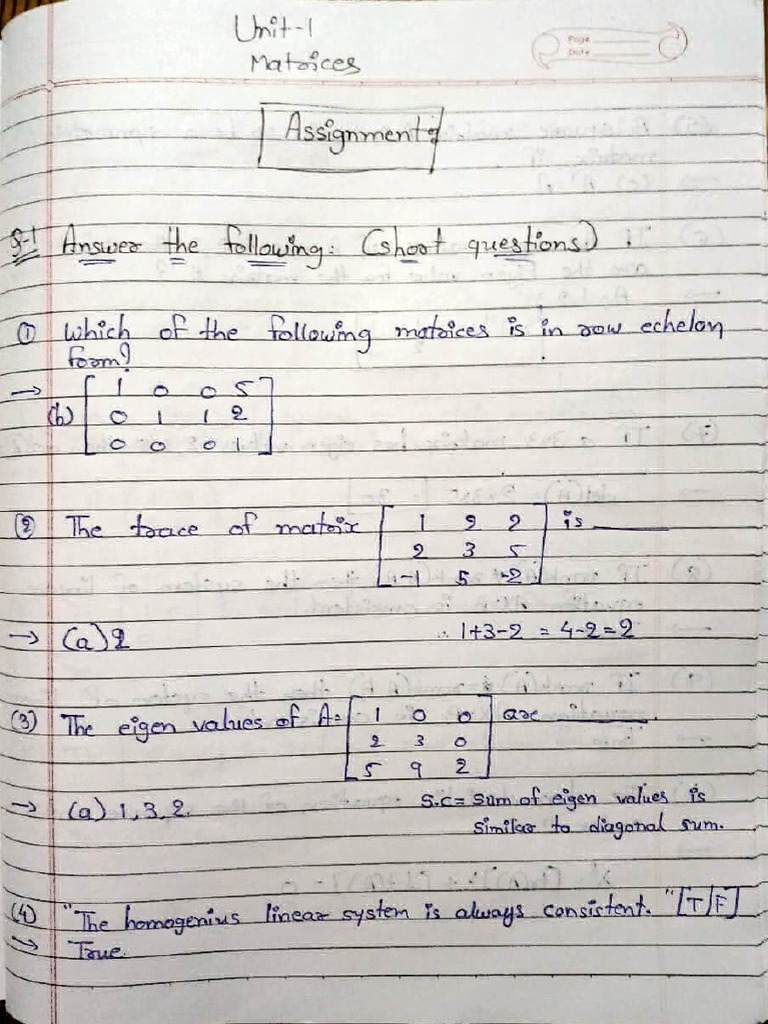 Unit-1
Matrices
Page
Date
Assignment:
Q-1 Answer the following: (short questions.) :
① Which of the following matrices is in row echelon
form?
→ (b) [ 1 0 0 5
0 1 1 2
0 0 0 1 ]
② The trace of matrix [ 1 2 2
2 3 5
-1 5 -2 ] is ______
→ (a) 2 ∴ 1+3-2 = 4-2=2
(3) The eigen values of A= [ 1 0 0
2 3 0
5 9 2 ] are ______.
→ (a) 1, 3, 2. S.C = Sum of eigen values is
similar to diagonal sum.
(4) "The homogenius linear system is always consistent." [T/F]
→ True.